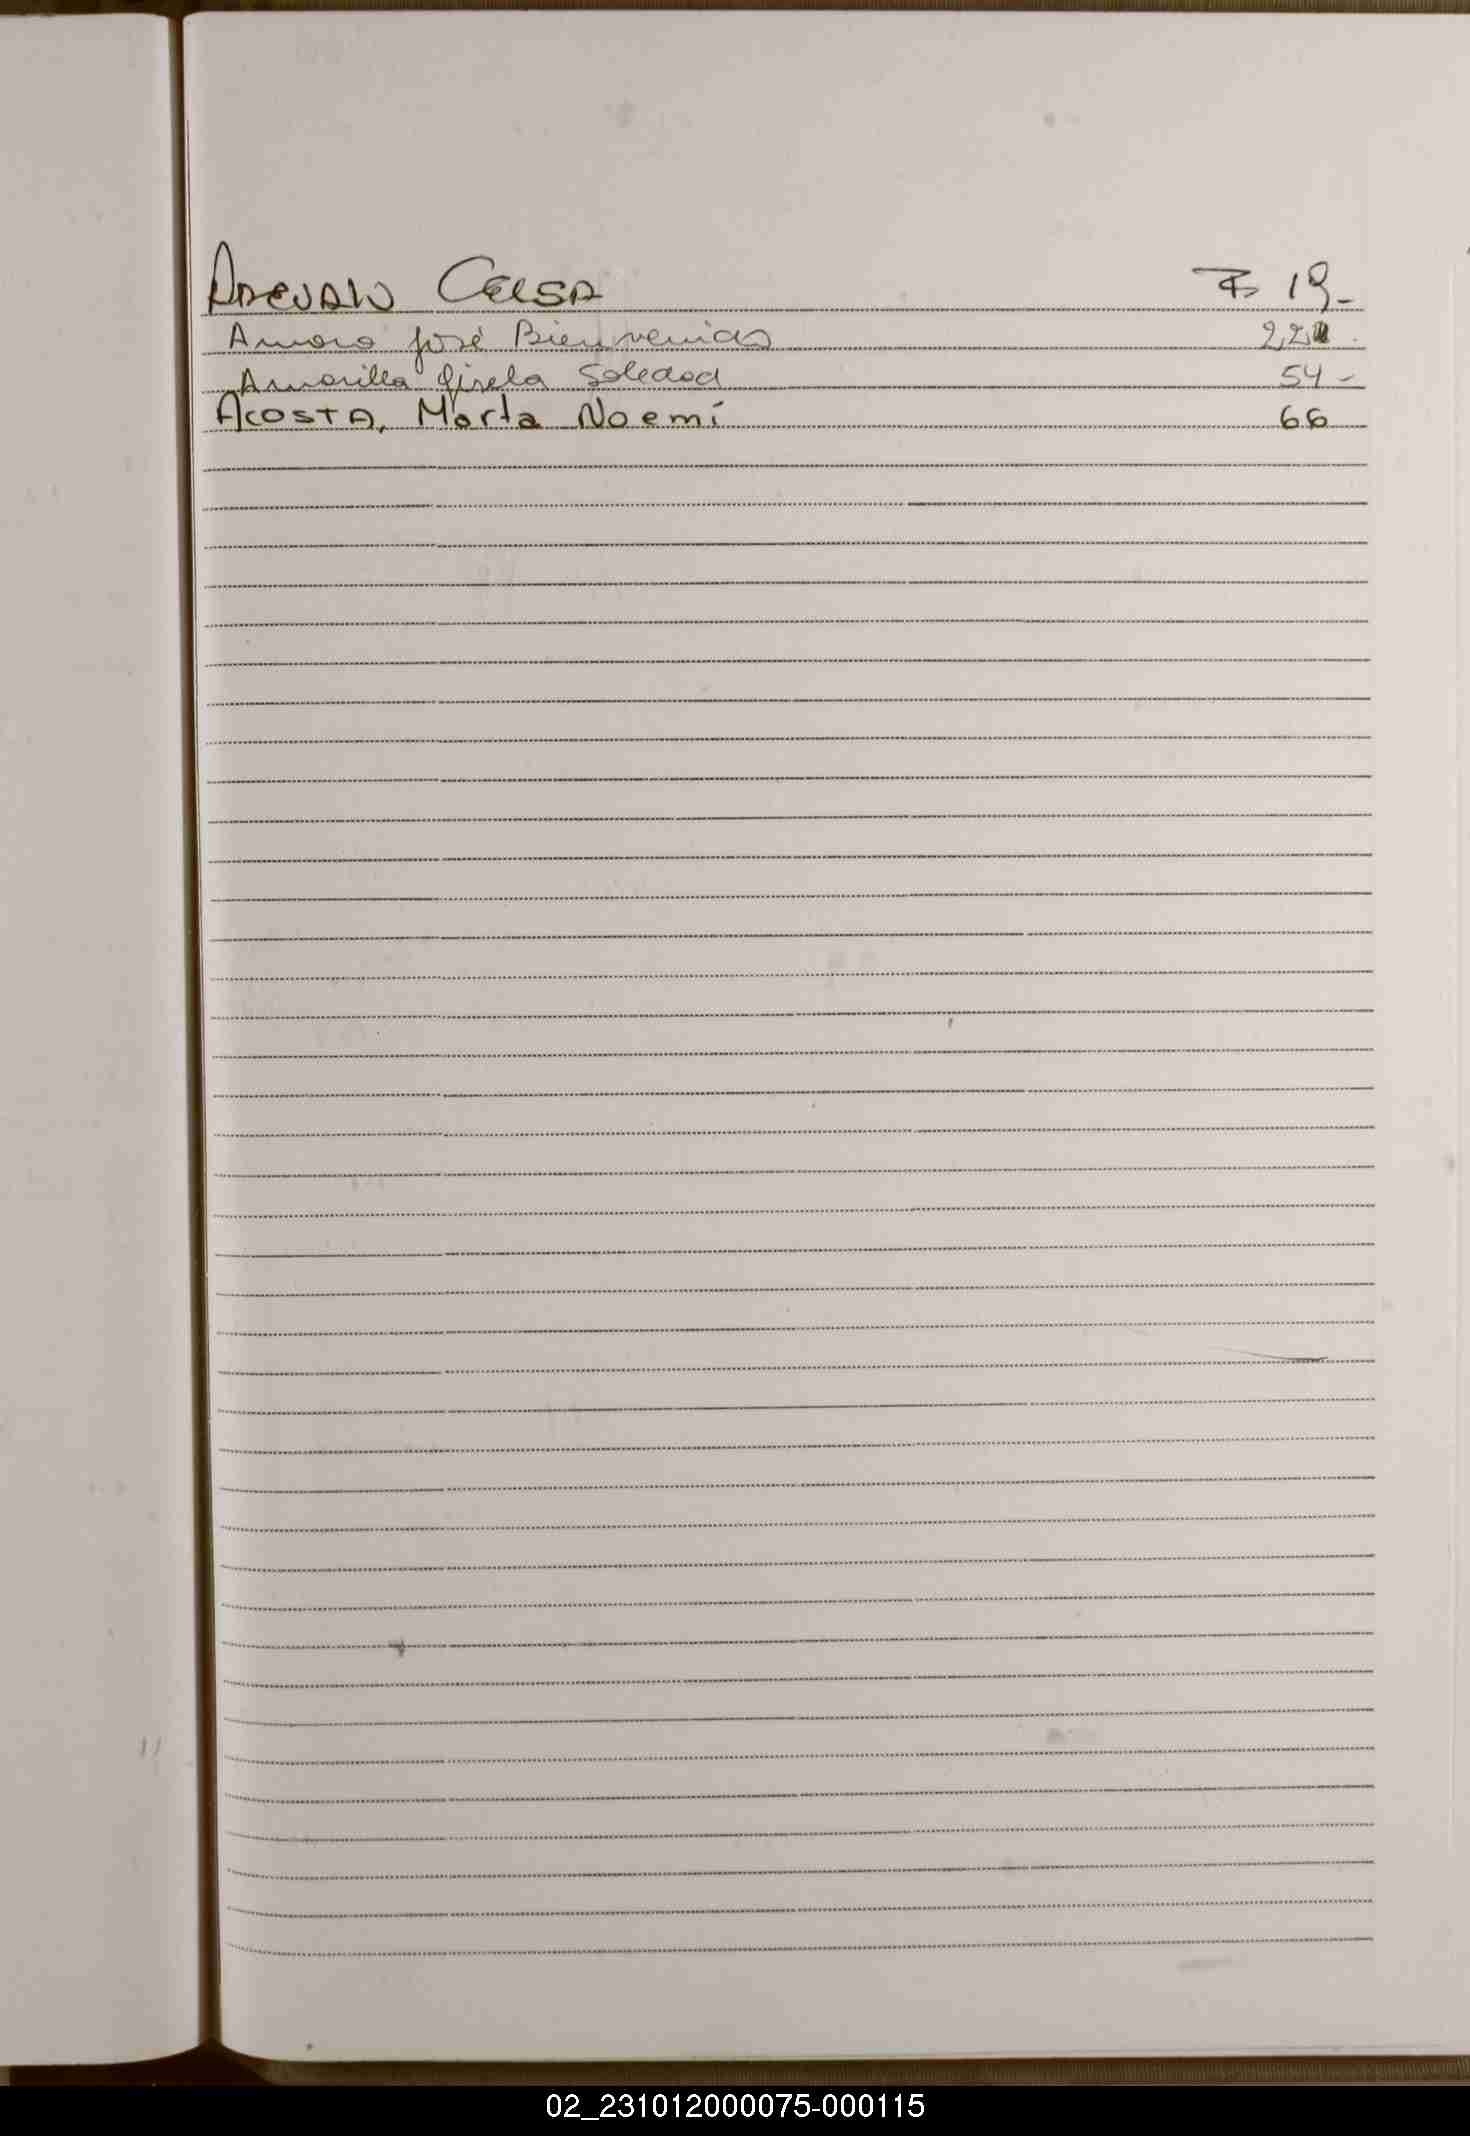 Celsa Fs 19-
José Bienvenido 22
Amarilla Gisela Soledad 54-
Acosta, Marta Noemí 66
02_231012000075-000115